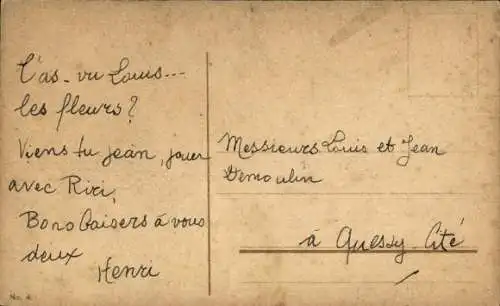 T'as-vu Louis...
les fleurs?
Viens tu jean, jouer
avec Riri,
Bons baisers à vous
deux
Henri
Messieurs Louis et Jean
Demoulin
à Quessy-Cité
No. 4